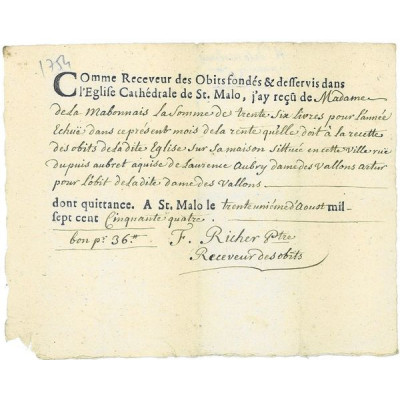 1754
Comme Receveur des Obits fondés & desservis dans
l'Eglise Cathédrale de St. Malo, j'ay reçû de Madame
de la Mabonnais la Somme de trente Six livres pour l'année
Echüe dans ce present mois de la rente qu'elle doit à la recette
des obits de la dite Eglise Sur la maison sittuée en cette Ville rue
du puis aubret aquise de Laurence Aubry dame des Vallons Artur
pour l'obit de la dite dame des Vallons
dont quittance. A St. Malo le trente unième d'Aoust mil
sept cent Cinquante quatre.
bon pr. 36.# F. Richer Ptre
Receveur des obits